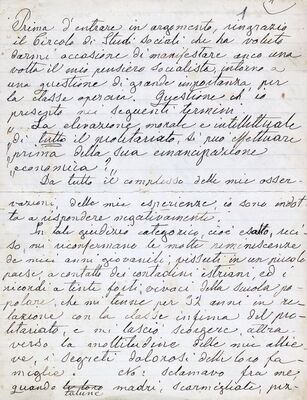 1
Prima d'entrare in argomento, ringrazio
il Circolo di Studi sociali che ha voluto
darmi occasione di manifestare anco una
volta il mio pensiero socialista intorno a
una questione di grande importanza per
la classe operaia. Questione ch' io
presento nei seguenti termini:
"La elevazione morale e intellettuale
"di tutto il proletariato, si può effettuare
"prima della sua emancipazione
"economica?"
Da tutto il complesso delle mie osser-
vazioni, delle mie esperienze io sono indot
ta a rispondere negativamente.
In tale giudizio categorico, cioè esatto, reci
so, mi riconfermano le molte reminescenze
de' miei anni giovanili, vissuti in un piccolo
paese, a contatto dei contadini istriani, ed i
ricordi a tinte forti, vivaci della scuola po
polare, che mi tenne per 32 anni in re
lazione con la classe infima del pro
letariato, e mi lasciò scorgere, attra
verso la moltitudine delle mie allie
ve, i segreti dolorosi delle loro fa
miglie. esclamavo fra me
quando talune madri, scarmigliate, pez